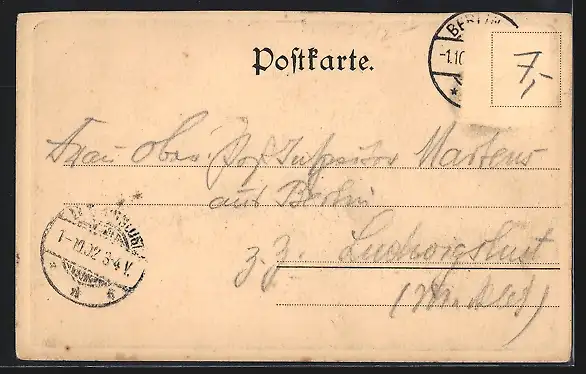 BERLIN
-1.10
Postkarte.
7,-
Frau Ober. Post Inspector Martens
aus Berlin
1-10.02 3-4 V.
z. Z. Ludwigslust